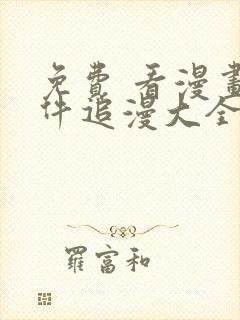 免費 看漫畫
件追漫大全
羅富和